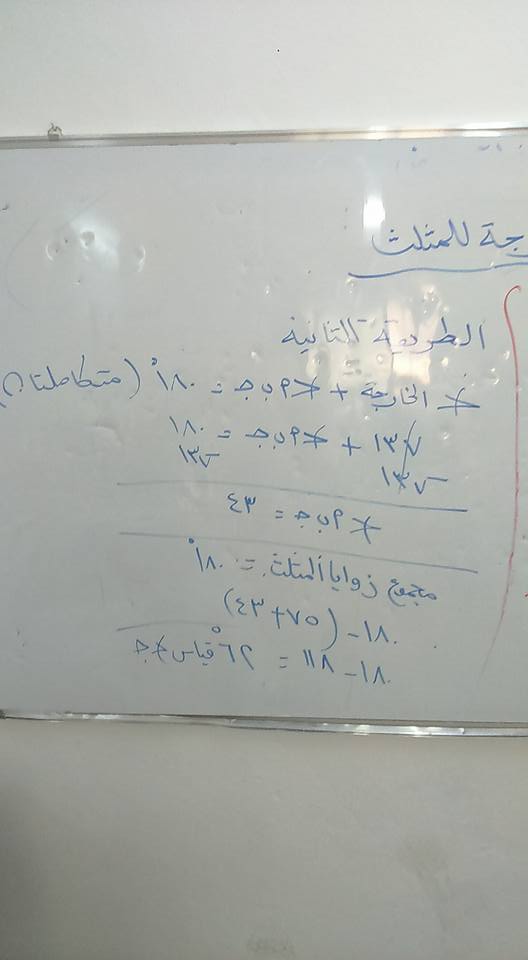 جة للمثلث
الطريقة الثانية
∢ الخارجة + ∢ ٩ ب ج = ١٨٠° (متكاملتان)
١٣٧ + ∢ ٩ ب ج = ١٨٠
١٣٧ ١٣٧
∢ ٩ ب ج = ٤٣
مجموع زوايا المثلث = ١٨٠°
١٨٠ - (٧٥ + ٤٣)
١٨٠ - ١١٨ = ٦٢° قياس ∢ ج